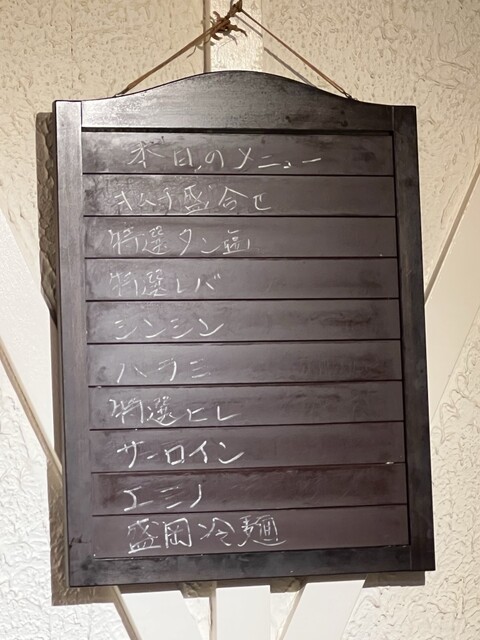 本日のメニュー
キムチ盛合せ
特選タン塩
特選レバ
シンシン
ハラミ
特選ヒレ
サーロイン
エミノ
盛岡冷麺